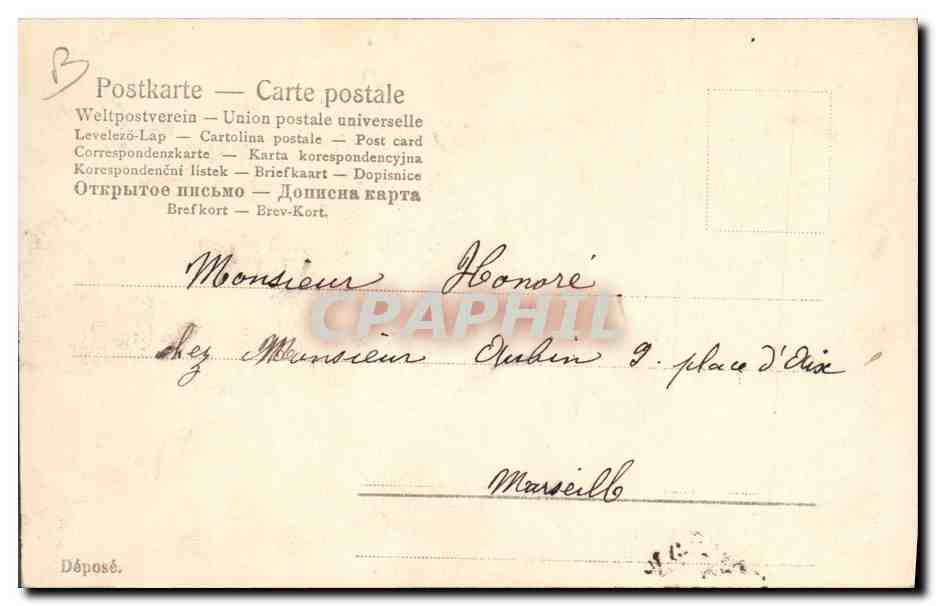 B
Postkarte — Carte postale
Weltpostverein — Union postale universelle
Levelező-Lap — Cartolina postale — Post card
Correspondenzkarte — Karta korespondencyjna
Korespondenční lístek — Briefkaart — Dopisnice
Открытое письмо — Дописна карта
Brefkort — Brev-Kort.
Monsieur Honoré
CPAPHIL
chez Monsieur Aubin 9. place d'Aix
Marseille
Déposé.